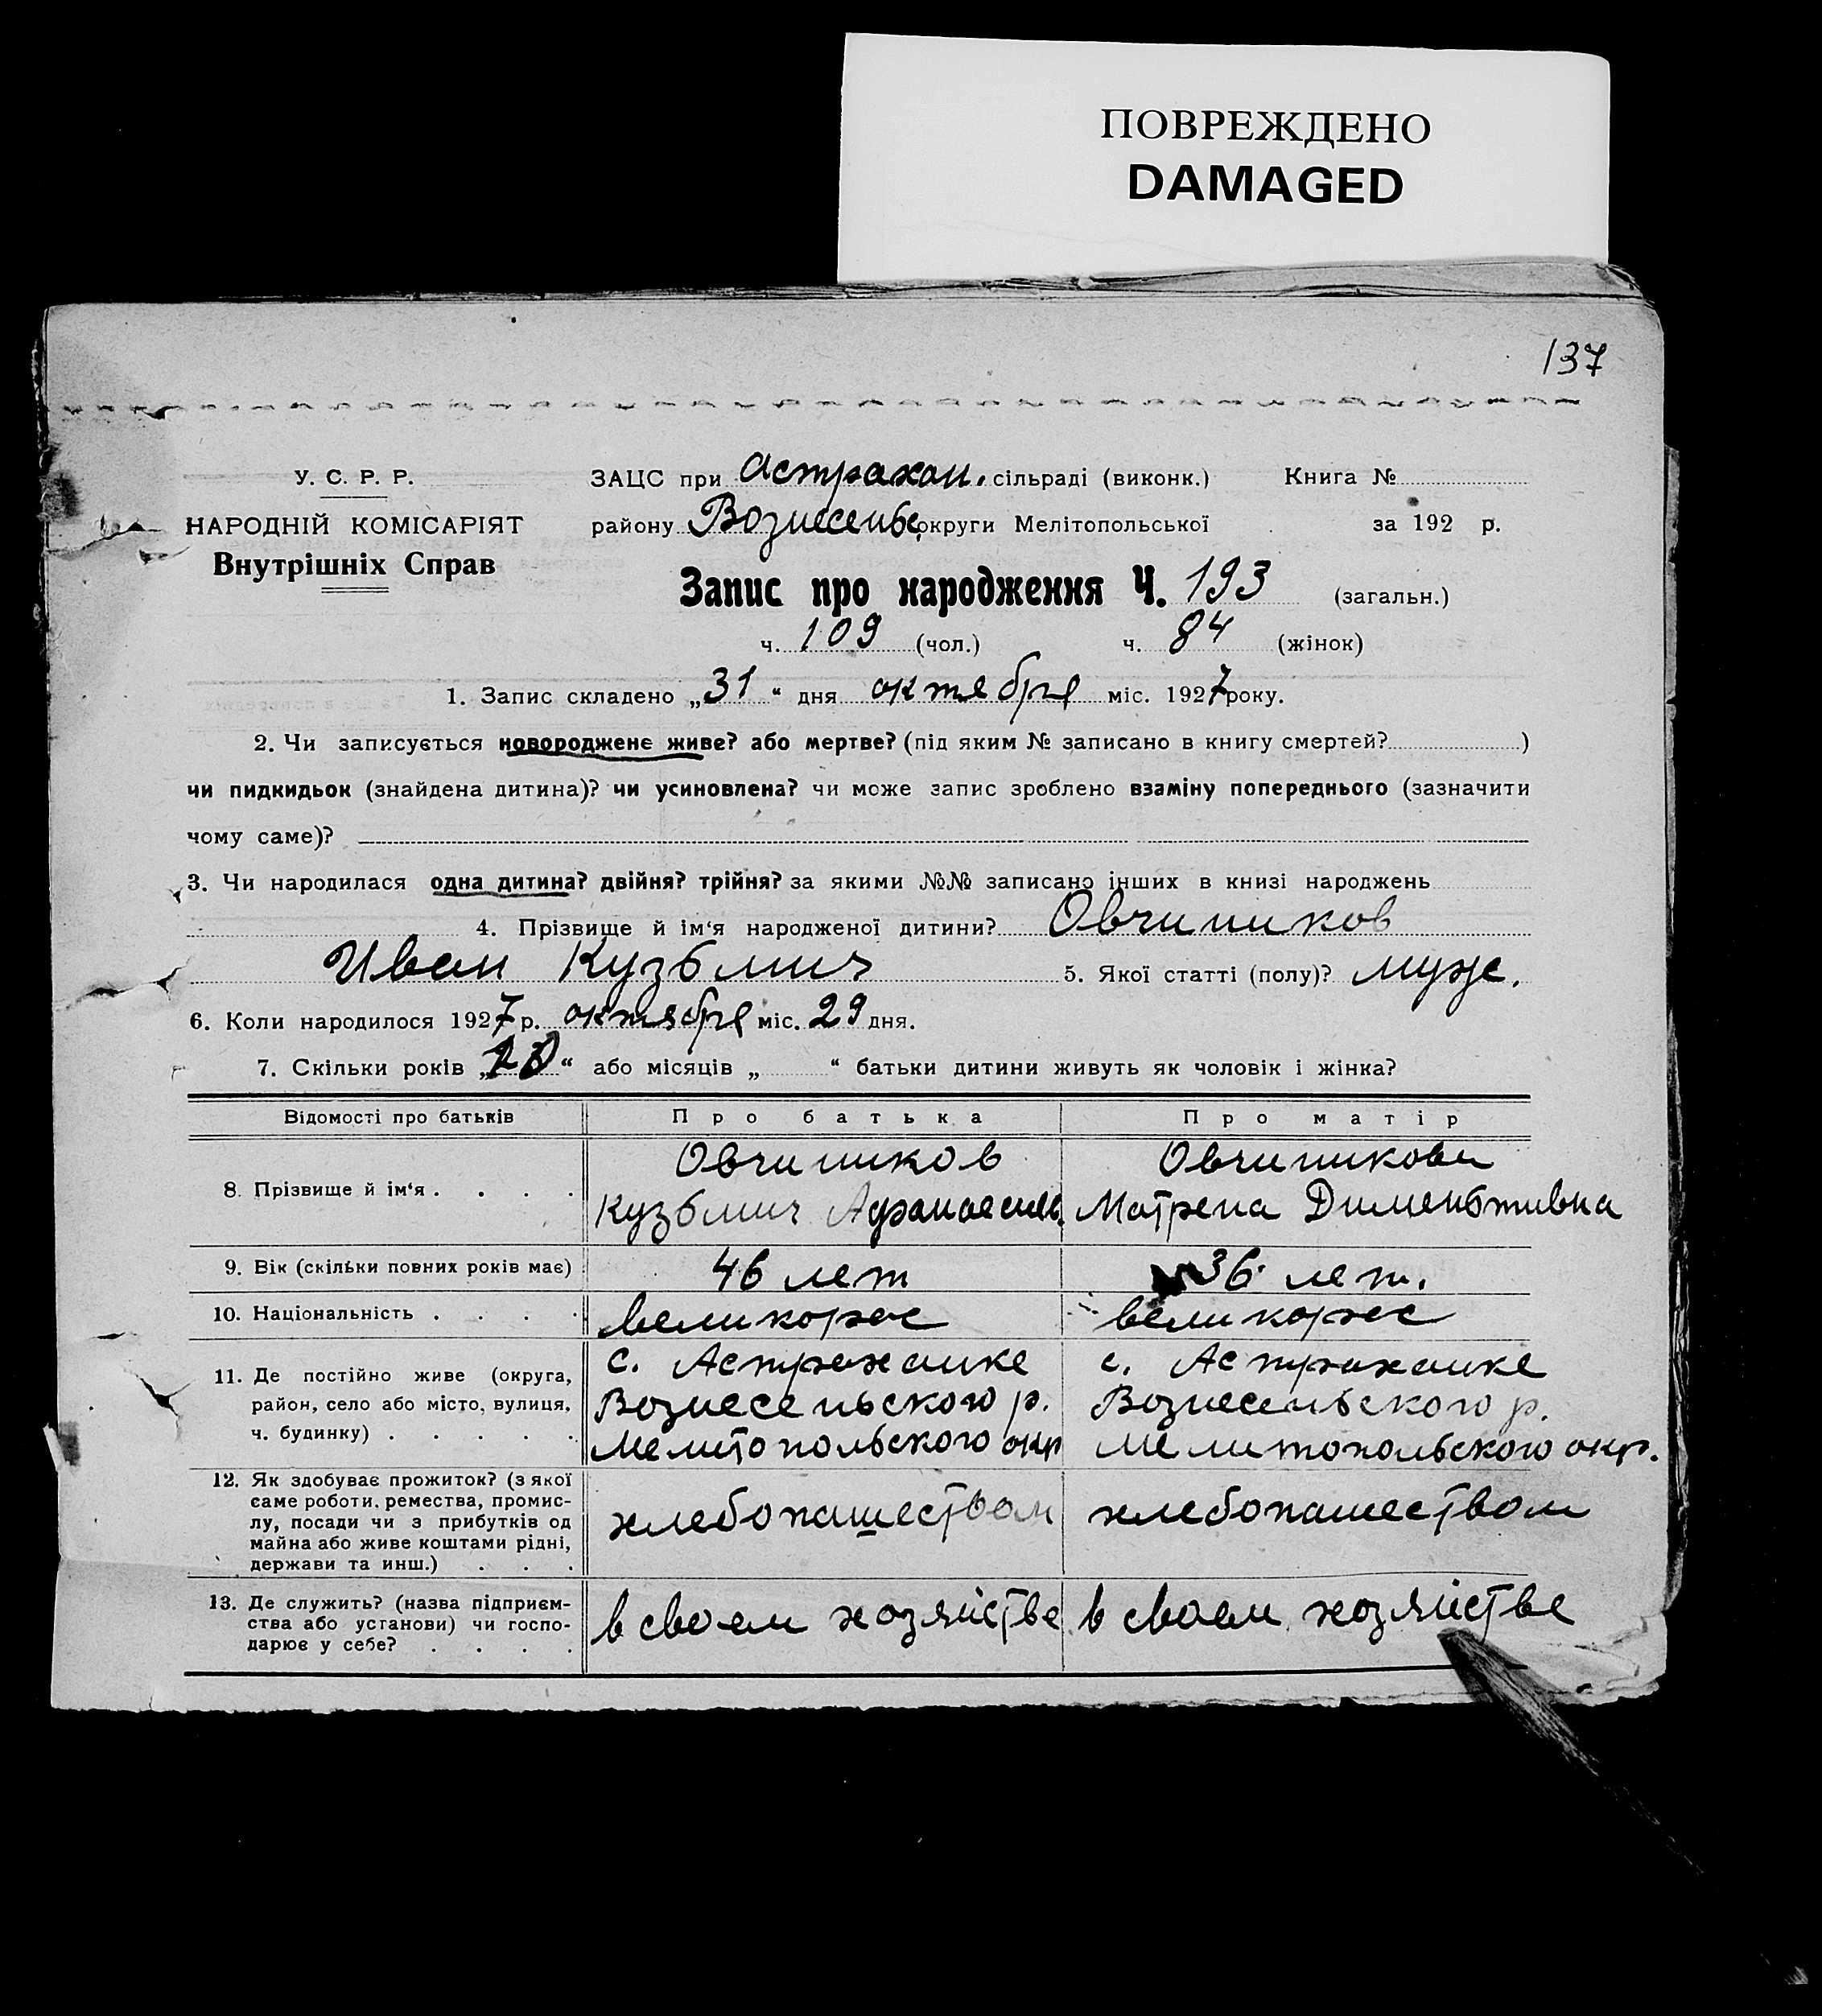 ПОВРЕЖДЕНО
DAMAGED
137
У. С. Р. Р.
НАРОДНІЙ КОМІСАРІЯТ
Внутрішніх Справ
ЗАЦС при Астрахан. сільраді (виконк.) Книга №
району Вознесеньс. округи Мелітопольської за 192 р.
Запис про народження Ч. 193 (загальн.)
ч. 109 (чол.) ч. 84 (жінок)
1. Запис складено „31“ дня октября міс. 1927 року.
2. Чи записується новороджене живе? або мертве? (під яким № записано в книгу смертей? )
чи пидкидьок (знайдена дитина)? чи усиновлена? чи може запис зроблено взаміну попереднього (зазначити
чому саме)?
3. Чи народилася одна дитина? двійня? трійня? за якими №№ записано інших в книзі народжень
4. Прізвище й ім‘я народженої дитини? Овчиников
Иван Кузьмич 5. Якої статті (полу)? муж.
6. Коли народилося 1927 р. октября міс. 29 дня.
7. Скільки років „ “ або місяців „ “ батьки дитини живуть як чоловік і жінка?
Відомості про батьків Про батька Про матір
8. Прізвище й ім‘я . . . . Овчиников Овчиникова
Кузьмич Матрена
9. Вік (скільки повних років має) 46 лет 36 лет.
10. Національність . . . . великорос великорос
11. Де постійно живе (округа,
район, село або місто, вулиця,
ч. будинку) . . . . .
с. Астраханке
Вознесеньского р.
Мелитопольского окр
с. Астраханке
Вознесеньского р.
Мелитопольского окр.
12. Як здобуває прожиток? (з якої
саме роботи, ремества, промис-
лу, посади чи з прибутків од
майна або живе коштами рідні,
держави та инш.) . . .
хлебопашеством хлебопашеством
13. Де служить? (назва підприєм-
ства або установи) чи госпо-
дарює у себе? . . . .
в своем хозяйстве в своем хозяйстве